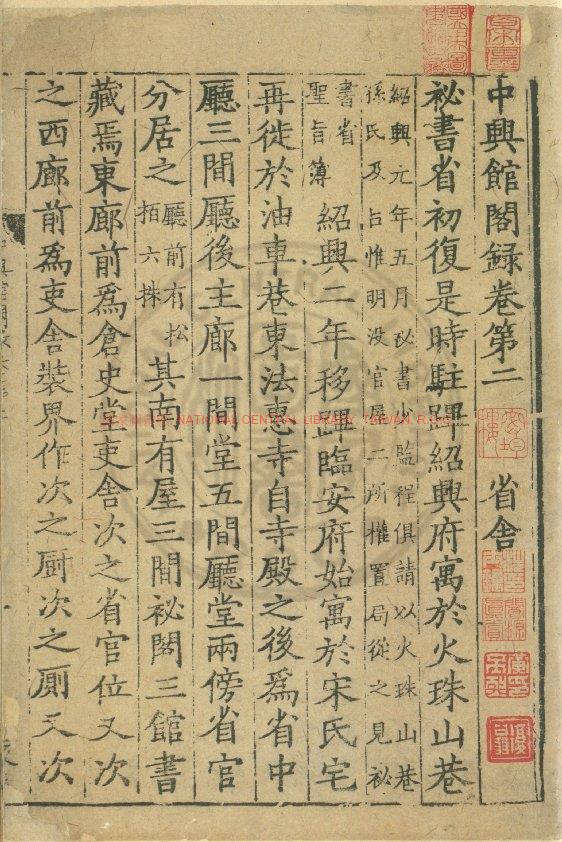 中興館閣録卷第二　省舍
祕書省初復是時駐蹕紹興府寓於火珠山巷
紹興元年五月祕書少監程俱請以火珠山巷
孫氏及吕惟明没官屋二所權置局從之見祕
書省
聖旨簿
紹興二年移蹕臨安府始寓於宋氏宅
再徙於油車巷東法惠寺自寺殿之後爲省中
廳三間廳後主廊一間堂五間廳堂兩傍省官
分居之
廳前有松
栢六株
其南有屋三間祕閣三館書
藏焉東廊前爲倉史堂吏舍次之省官位又次
之西廊前爲吏舍裝界作次之厨次之厠又次
NATIONAL CENTRAL LIBRARY, TAIWAN